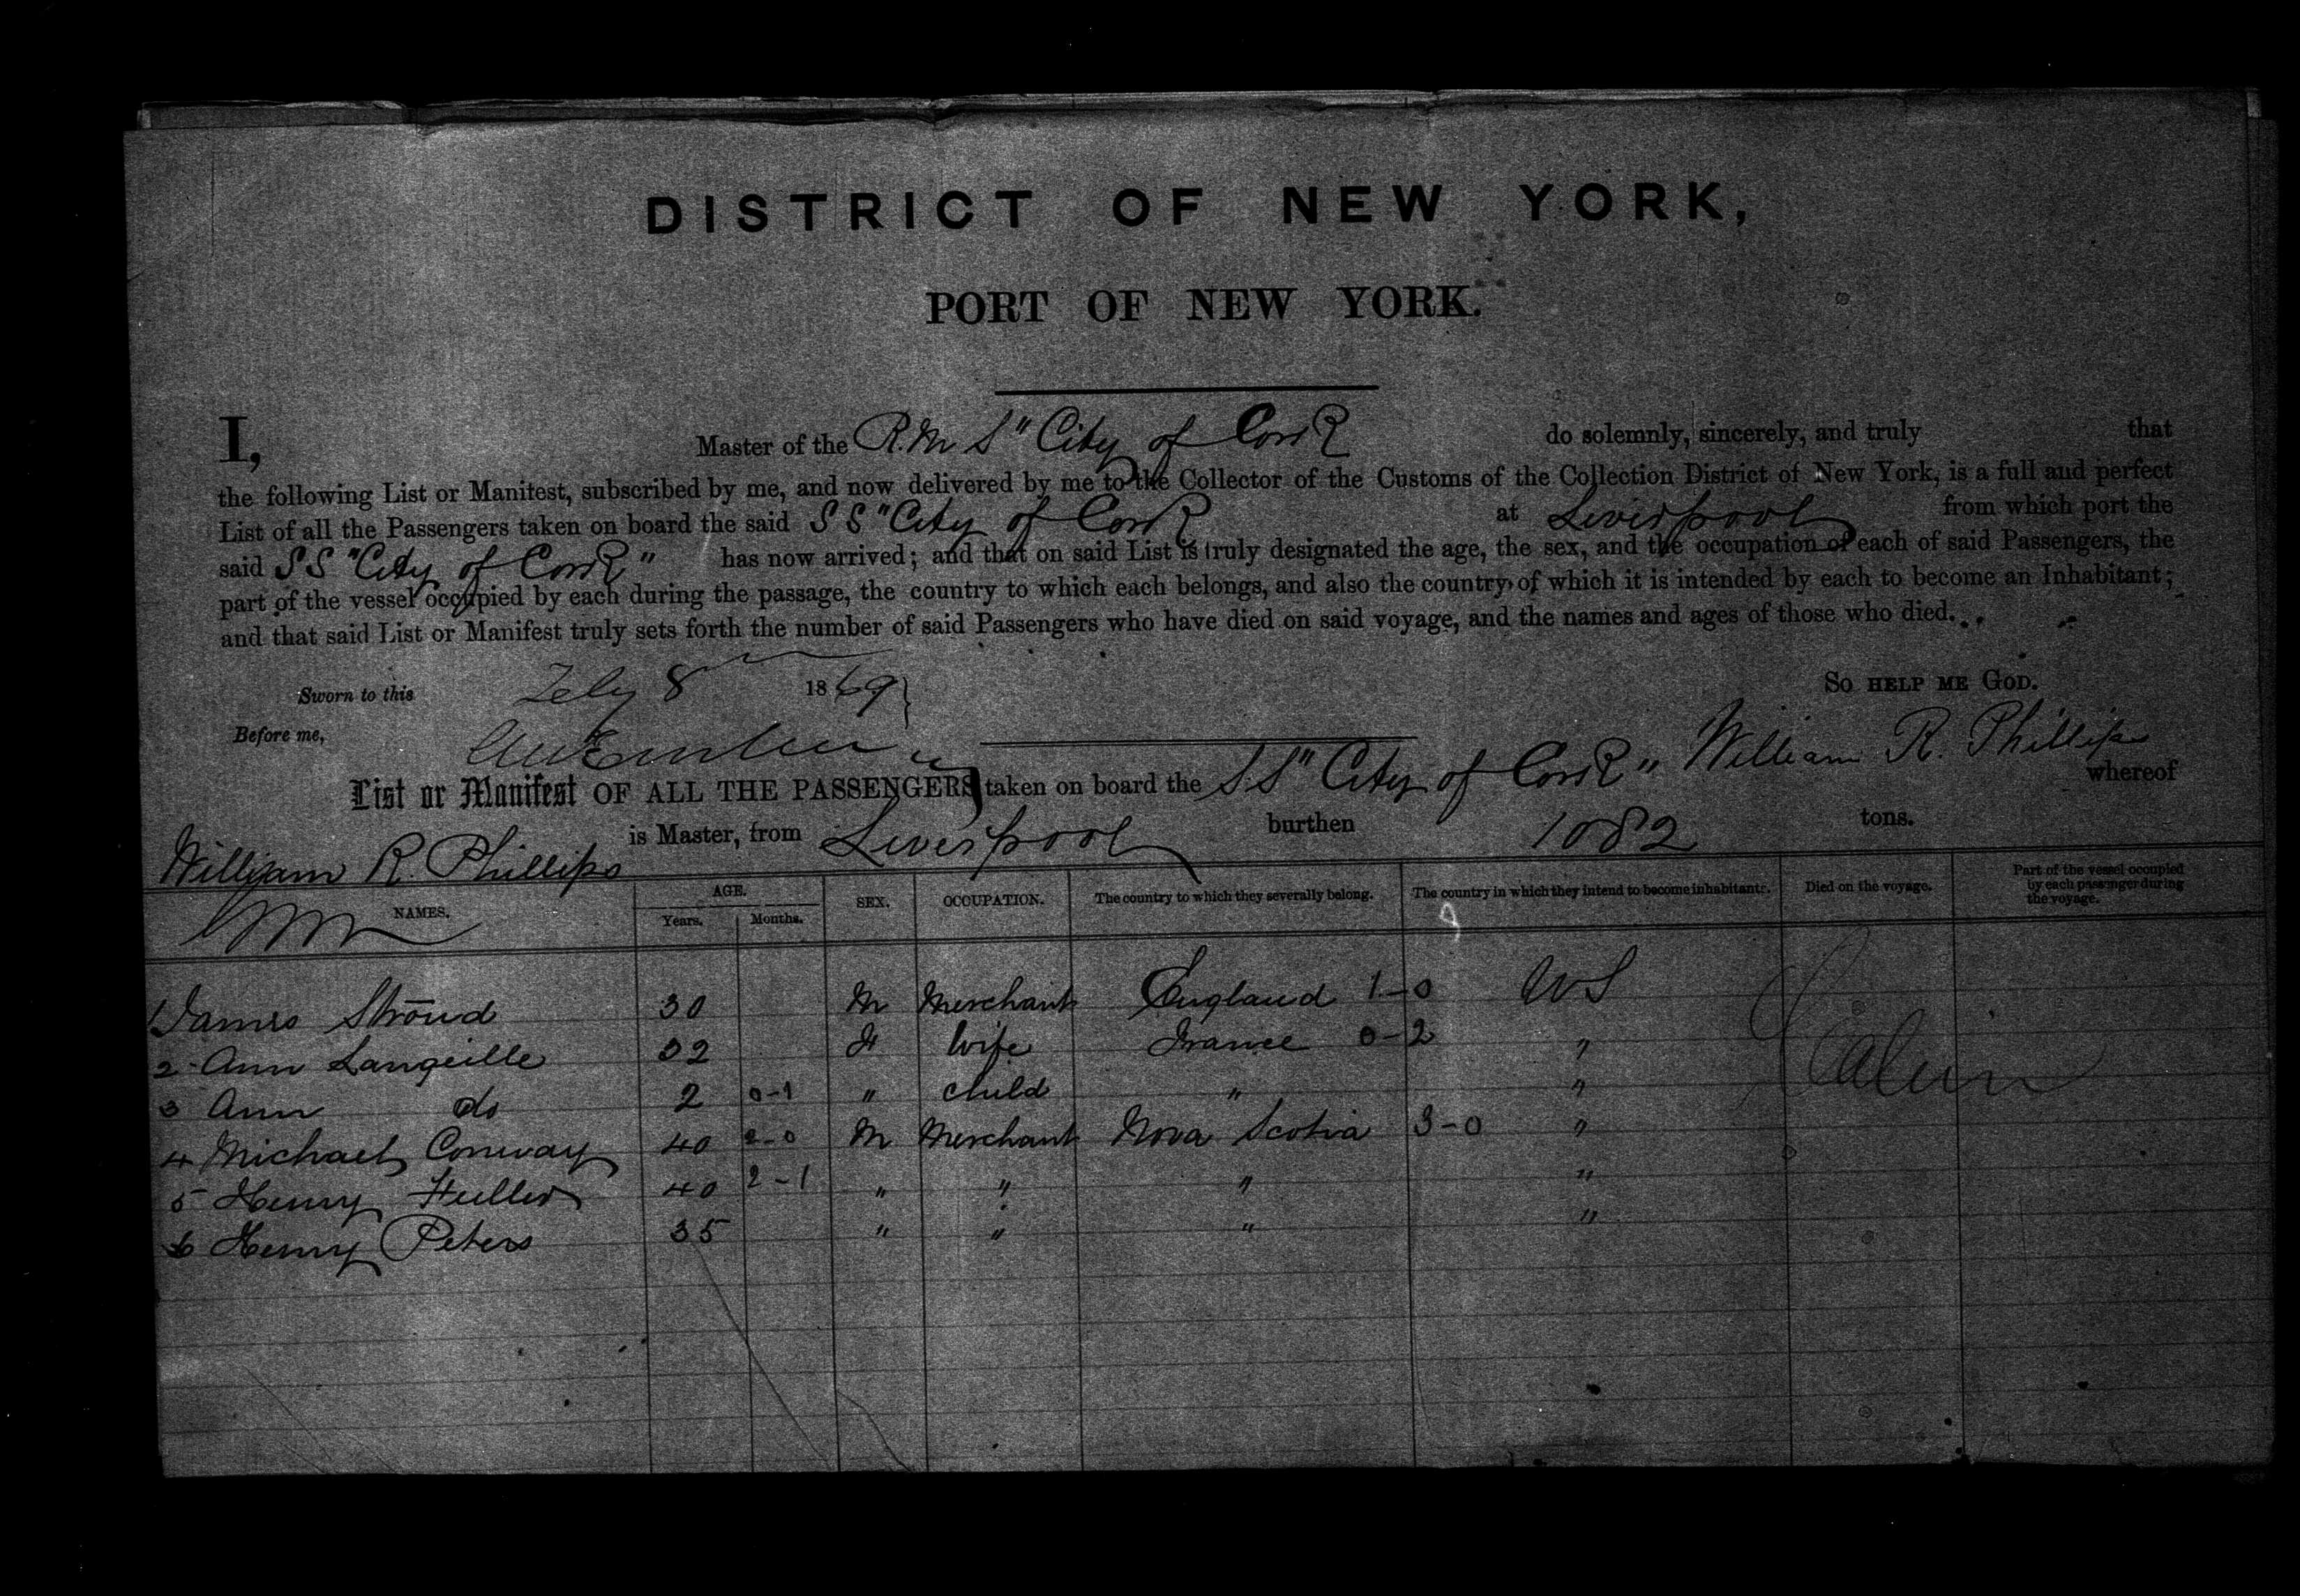 DISTRICT OF NEW YORK,
PORT OF NEW YORK.
I, Master of the R.M.S " City of Cork do solemnly, sincerely, and truly that
the following List or Manifest, subscribed by me, and now delivered by me to the Collector of the Customs of the Collection District of New York, is a full and perfect
List of all the Passengers taken on board the said SS "City of Cork at Liverpool from which port the
said SS "City of Cork" has now arrived; and that on said List is truly designated the age, the sex, and the occupation of each of said Passengers, the
part of the vessel occupied by each during the passage, the country to which each belongs, and also the country of which it is intended by each to become an Inhabitant;
and that said List or Manifest truly sets forth the number of said Passengers who have died on said voyage, and the names and ages of those who died.
Sworn to this Feby 8 1869 SO HELP ME GOD.
Before me, William R. Phillips
List or Manifest OF ALL THE PASSENGERS taken on board the S.S " City of Cork " whereof
William R. Phillips is Master, from Liverpool burthen 1082 tons.
NAMES. AGE. Years. Months. SEX. OCCUPATION. The country to which they severally belong. The country in which they intend to become inhabitants. Died on the voyage. Part of the vessel occupied by each passenger during the voyage.
1 James Stroud 30 M Merchant England 1-0 US
2 Ann Langeille 32 F Wife France 0-2 "
3 Ann do 2 0-1 " child " "
4 Michael Conway 40 2-0 M Merchant Nova Scotia 3-0 "
5 Henry Fuller 40 2-1 " " " "
6 Henry Peters 35 " " " "
Cabin